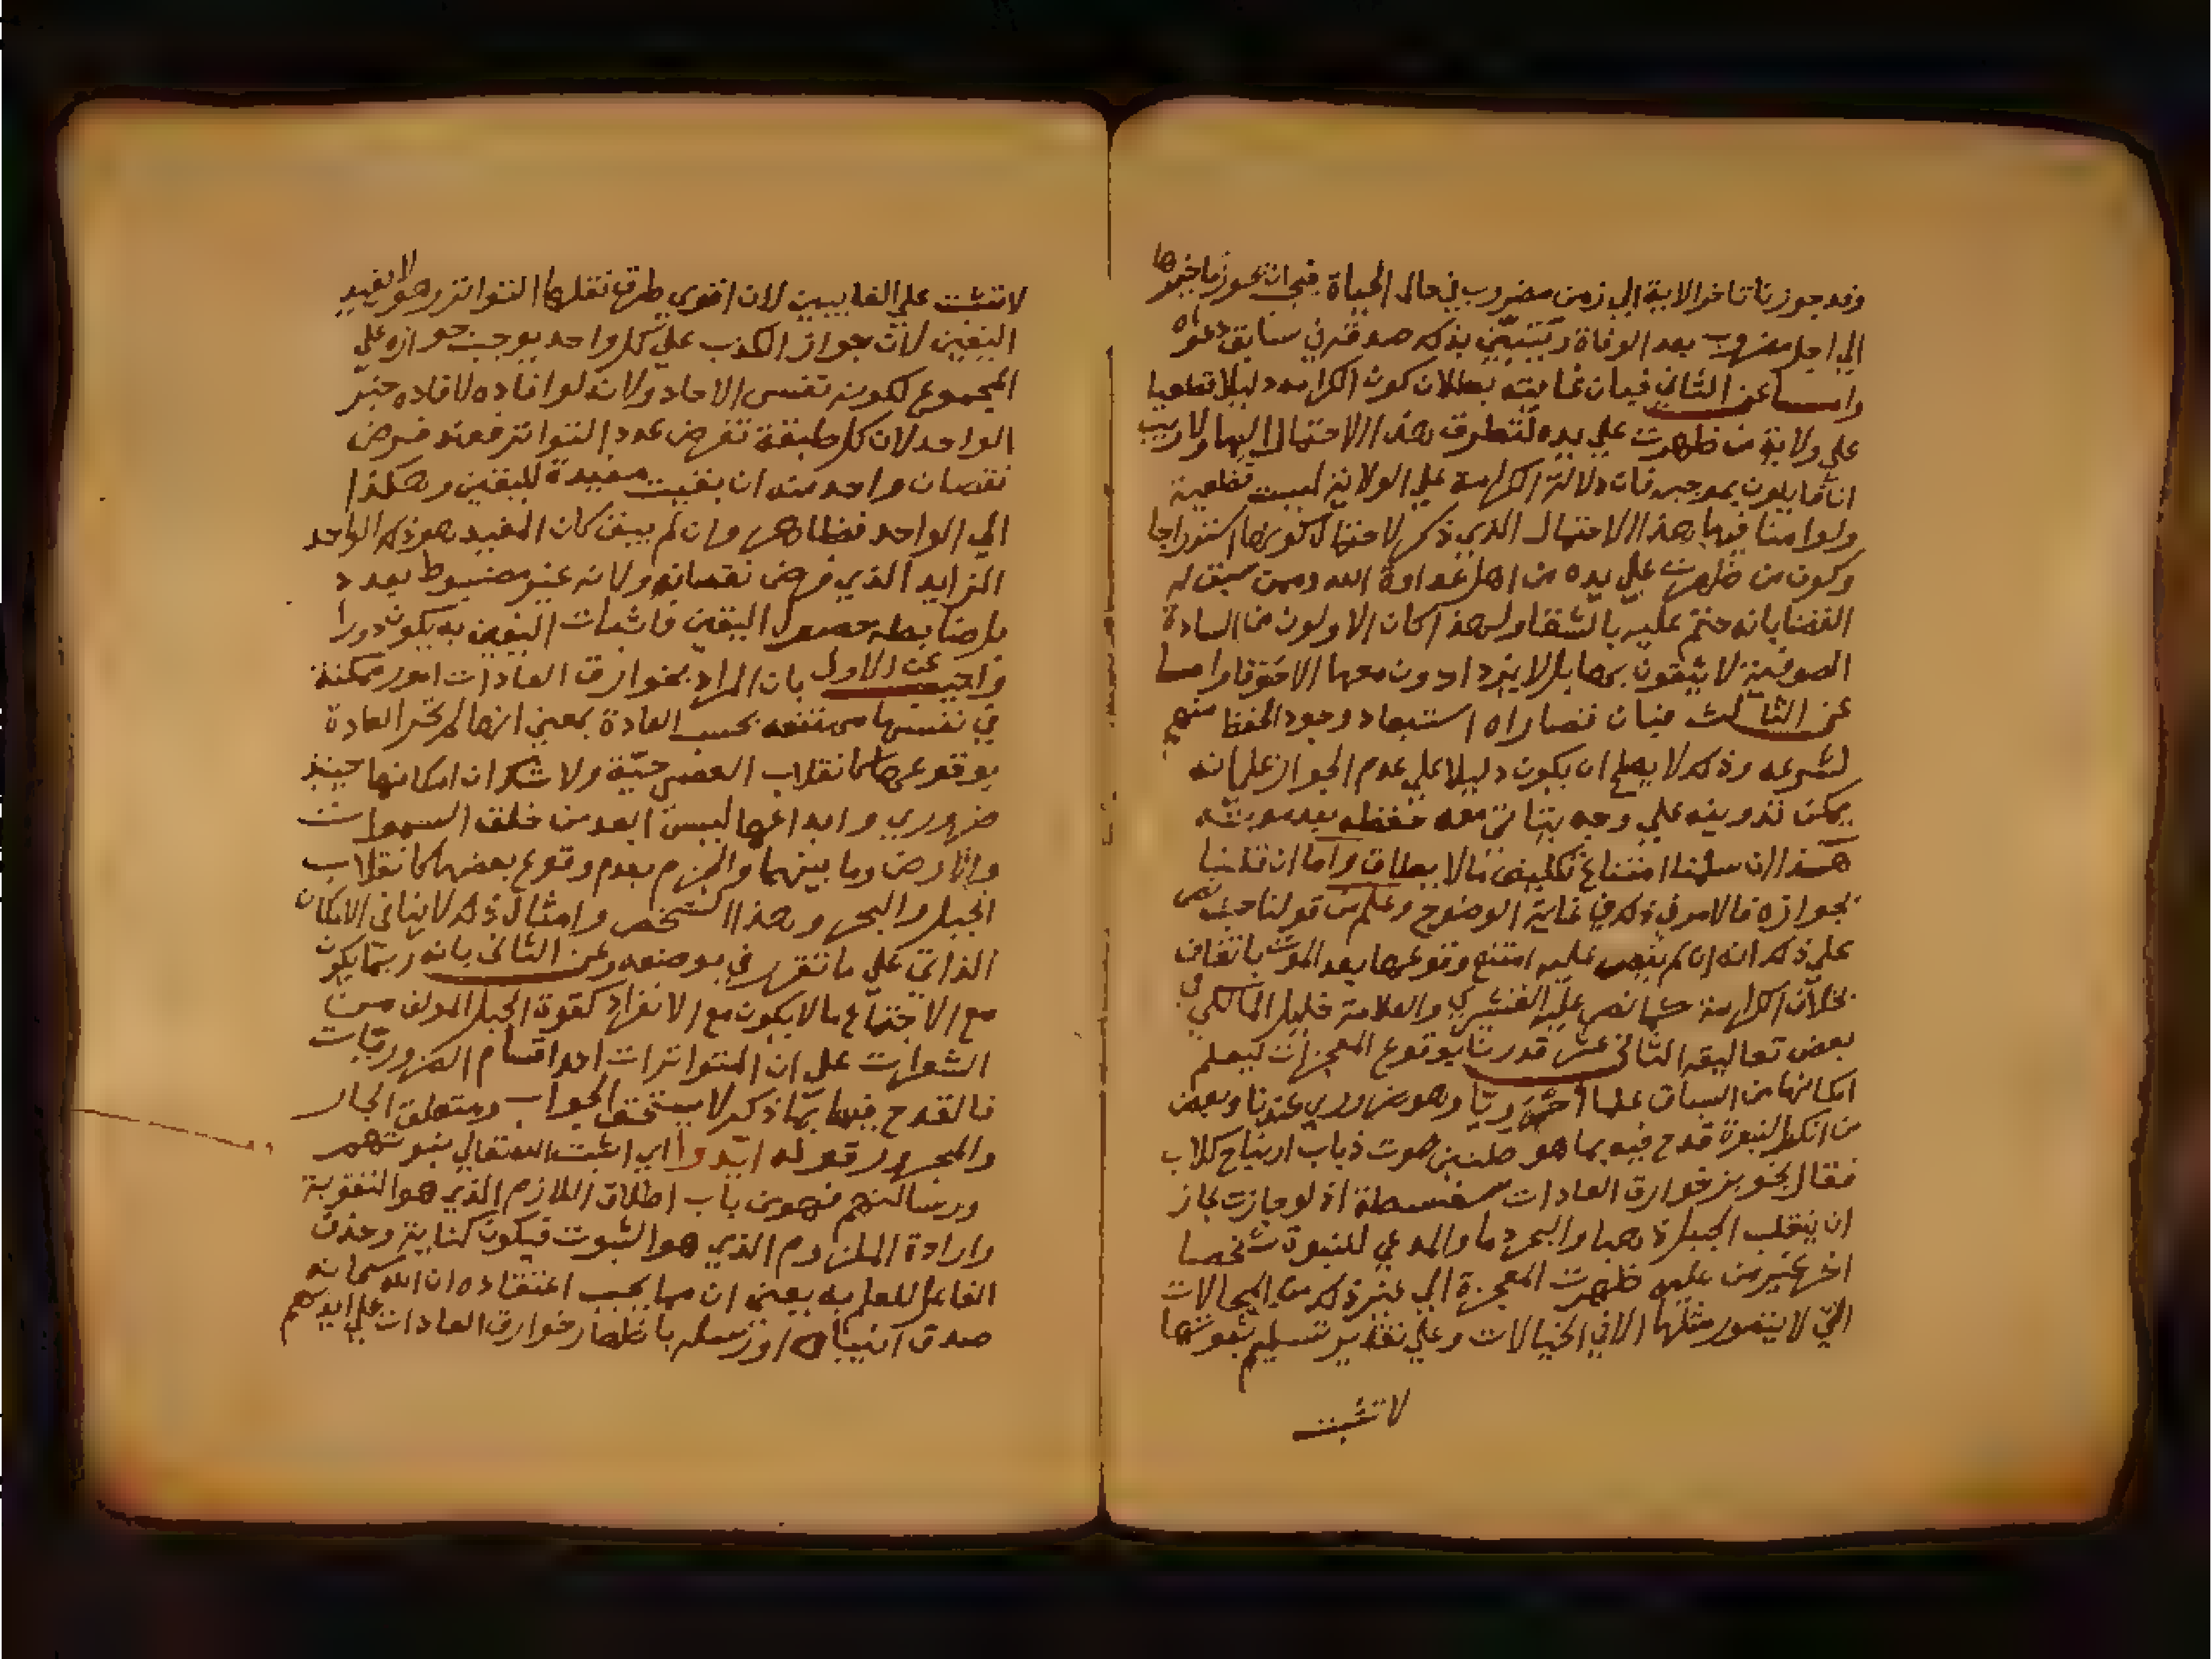 وقد جوزنا تاخر الاية الي زمن مضروب في حال الحياة فيجب ان يجوز تاخيرها
الي اجل مضروب بعد الوفاة ويتبين بذلك صدقه في سابق دعواه
واما عن الثاني فبان غايته بطلان كون الكرامة دليلا قطعيا
علي ولاية من ظهرت علي يده لتطرق هذا الاحتمال اليها ولا ريب
انا قايلون بموجبه فان دلالة الكرامة علي الولاية ليست قطعية
ولو امنا فيها هذا الاحتمال الذي ذكر لاحتمال كونها استدراجا
وكون من ظهرت علي يده من اهل عداوة الله وممن سبق له
القضا بانه حتم عليه بالشقا ولهذا كان الاولون من السادة
الصوفية لا يثقون بها بل لا يزدادون معها الا خوفا واما
عن الثالث فبان قصاراه استبعاد وجود الحفظ منهم
لشرعه وذلك لا يصلح ان يكون دليلا علي عدم الجواز علي انه
يمكن تدوينه علي وجه يتاتي معه حفظه بعد موته
هذا ان سلمنا امتناع تكليف ما لا يطاق واما ان قلنا
بجوازه فالامر في ذلك في غاية الوضوح وعلم من قولنا حيث نص
علي ذلك انه ان لم ينص عليه امتنع وقوعها بعد الموت باتفاق
بخلاف الكرامة كما نص عليه القشيري والعلامة خليل المالكي في
بعض تعاليقه الثاني عشر قدرنا بوقوع المعجزات ليعلم
امكانها من السياق علما ضروريا وهو ضروري عندنا وبعض
من انكر النبوة قدح فيه بما هو طنين صوت ذباب او نباح كلاب
فقال تجويز خوارق العادات سفسطة اذ لو جازت لجاز
ان ينقلب الجبل ذهبا والبحر دما والمدعي للنبوة شخصا
اخر غير من عليه ظهرت المعجزة الي غير ذلك من المحالات
التي لا يتصور مثلها الا في الخيالات وعلي تقدير تسليم ثبوتها
لا تثبت
لا تثبت علي الغايبين لان اقوي طرق نقلها التواتر وهو لا يفيد
اليقين لان جواز الكذب علي كل واحد يوجب جوازه علي
المجموع لكونه نفس الاحاد ولانه لو افاده لافاده خبر
الواحد لان كل طبقة تفرض عدد التواتر فعند فرض
نقصان واحد منه ان بقيت مفيدة لليقين وهكذا
الي الواحد فظاهر وان لم يبق كان المفيد هو ذلك الواحد
الزايد الذي فرض نقصانه ولانه غير مضبوط بعدد
بل ضابطه حصول اليقين فاثبات اليقين به يكون دورا
واجيب عن الاول بان المراد بخوارق العادات امور ممكنة
في نفسها ممتنعة بحسب العادة بمعني انها لم تجر العادة
بوقوعها كانقلاب العصي حية ولا شك ان امكانها حينيذ
ضروري وابداعها ليس ابعد من خلق السموات
والارض وما بينهما والجزم بعدم وقوع بعضها كانقلاب
الجبل والبحر وهذا الشخص وامثال ذلك لا ينافي الامكان
الذاتي علي ما تقرر في موضعه وعن الثاني بانه ربما يكون
مع الاجتماع ما لا يكون مع الانفراد كقوة الحبل المولف من
الشعرات علي ان المتواترات احد اقسام الضروريات
فالقدح فيها بما ذكر لا يستحق الجواب ومتعلق الجار
والمجرور قوله ايدوا اي اثبت الله تعالي نبوتهم
ورسالتهم فهو من باب اطلاق اللازم الذي هو التقوية
وارادة الملزوم الذي هو الثبوت فيكون كناية وحذف
الفاعل للعلم به يعني ان مما يجب اعتقاده ان الله سبحانه
صدق انبياه ورسله باظهار خوارق العادات علي ايديهم